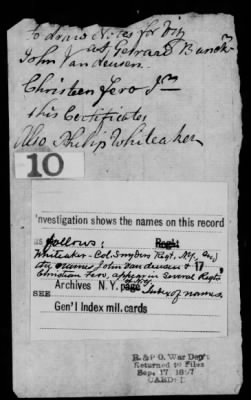 To draw Notes for Viz
Getraad Bunck
John Vandeusen.
Christeen Fero Jr
this Certificates
Also Philip Whiteaker
10
'nvestigation shows the names on this record
as follows: Regt
Whiteaker - Col. Snyders Regt, N.Y., and
names John Vandeusen &
Christian Fero, appear in several Regts
Archives N. Y. page
SEE Index of names.
Gen'l Index mil. cards
R. & P. O. War Dep't
Returned to Files
Sep. 17, 1897
CARD: